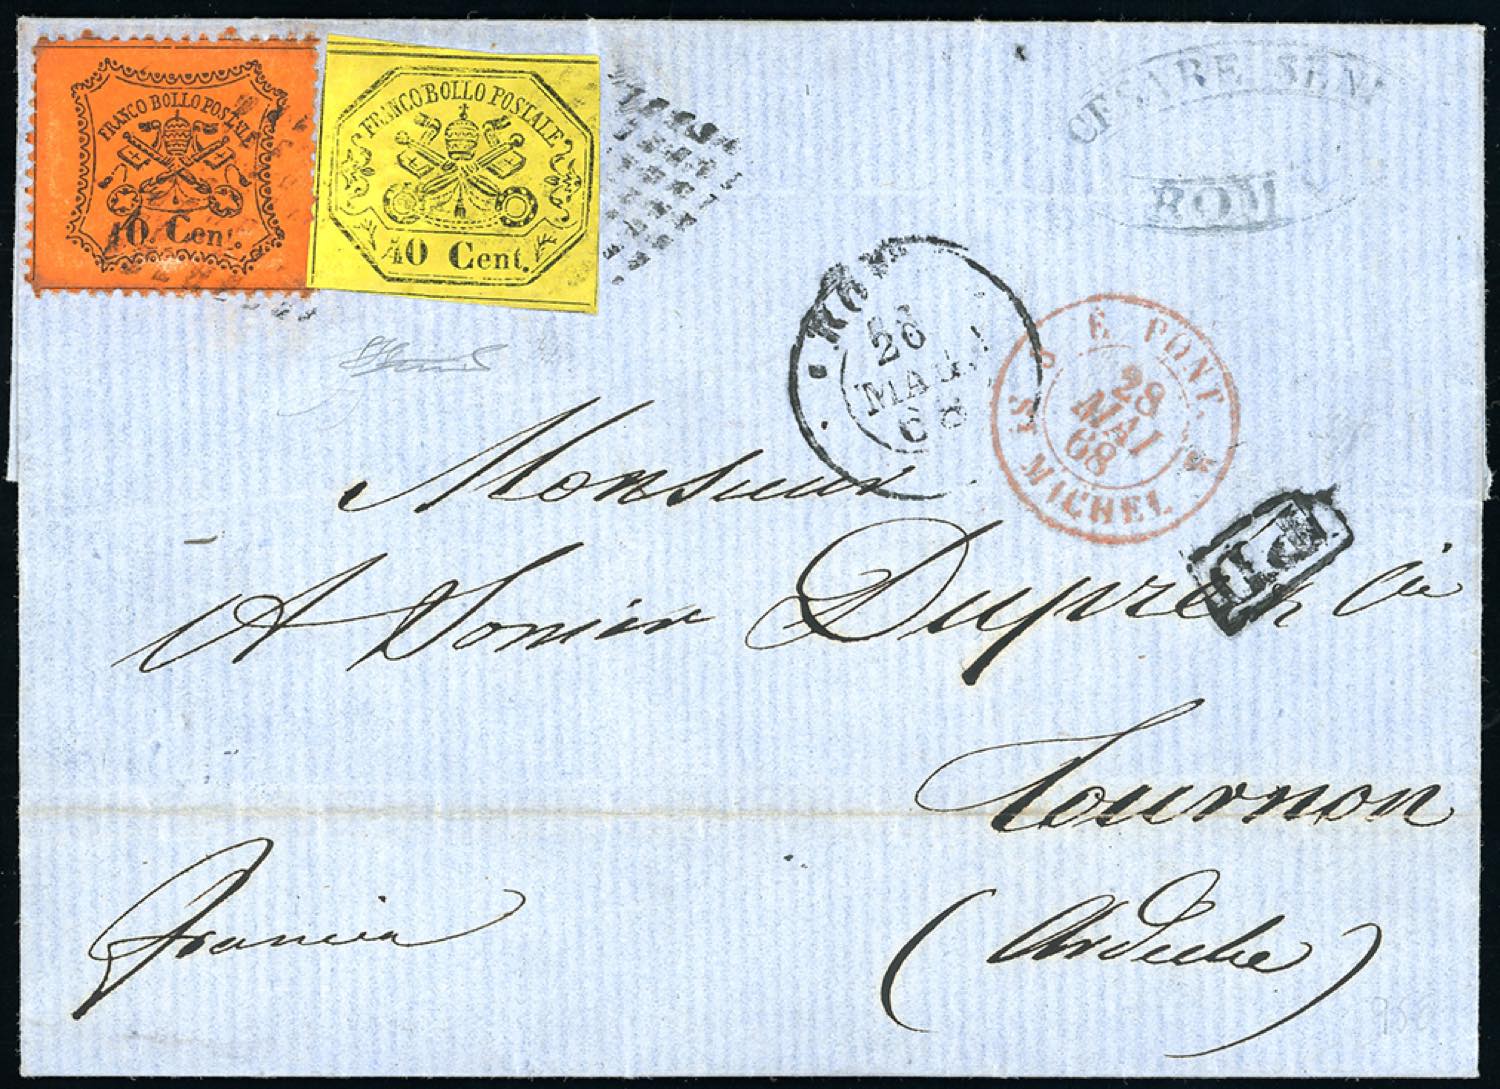 FRANCO BOLLO POSTALE
10. Cent.
FRANCO BOLLO POSTALE
40 Cent.
ROM
26
MAG
68
É. PONT.
28
MAI
68
ST MICHEL
PD
Monsieur
Dupré & Cie
Tournon
(Ardeche)
Francia